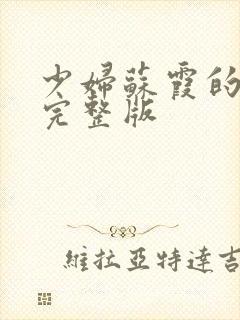 少婦蘇霞的
完整版
維拉亞特達吉